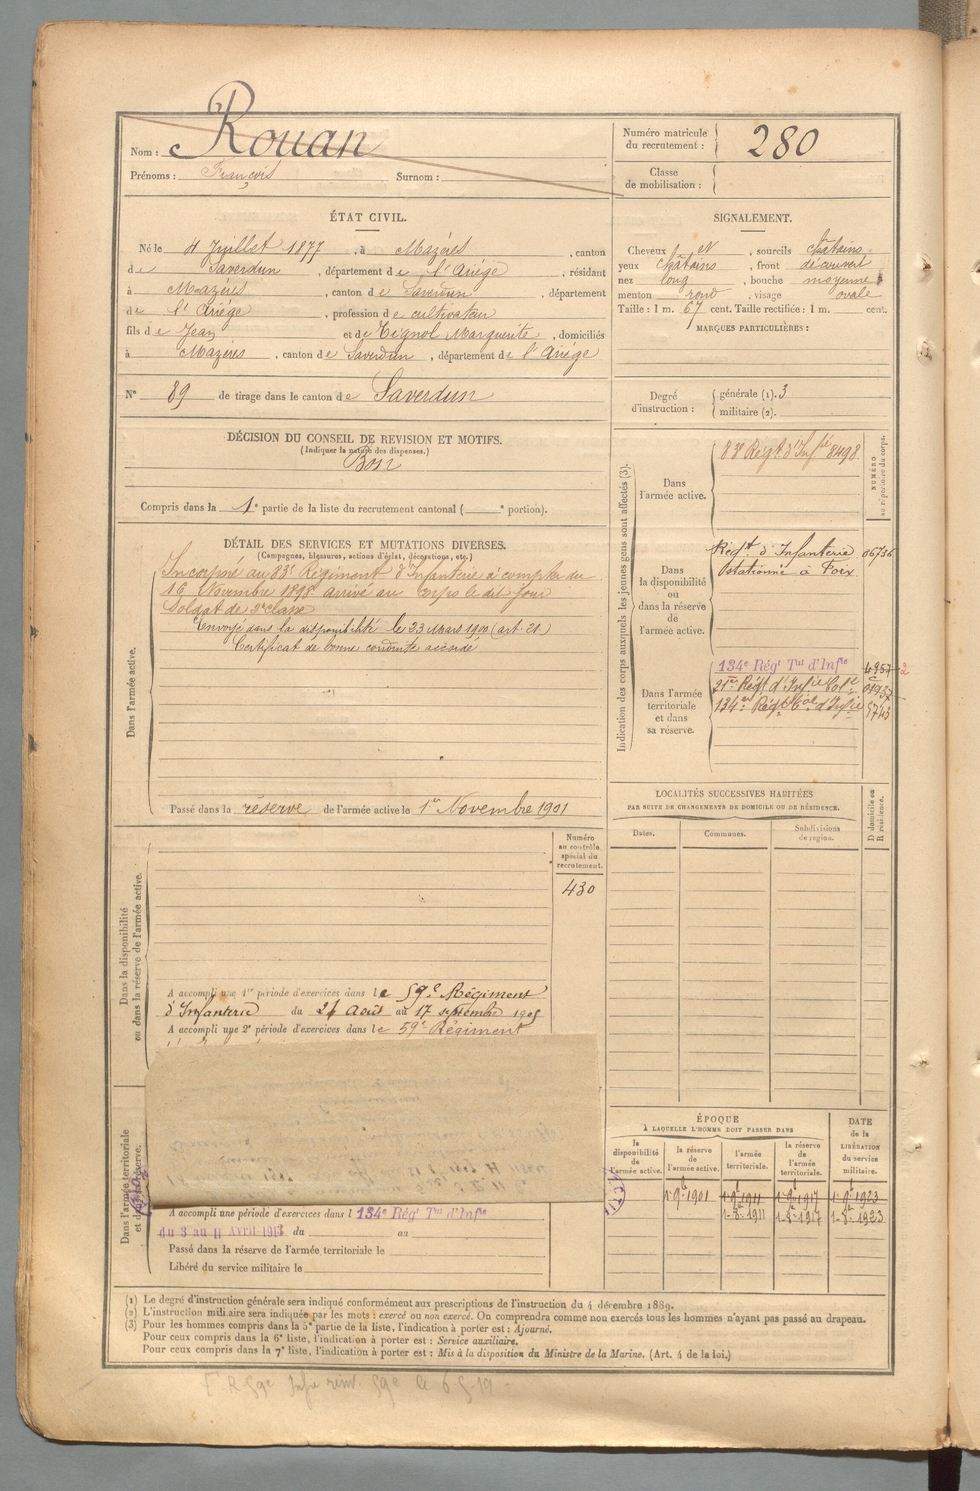 Nom : Rouan
Prénoms : François Surnom :
Numéro matricule du recrutement : 280
Classe de mobilisation :
ÉTAT CIVIL.
Né le 4 Juillet 1877, à Mazères, canton
de Saverdun, département de l'Ariège, résidant
à Mazères, canton de Saverdun, département
de l'Ariège, profession de cultivateur
fils de Jean et de Teignol Marguerite, domiciliés
à Mazères, canton de Saverdun, département de l'Ariège
N° 89 de tirage dans le canton de Saverdun
SIGNALEMENT.
Cheveux N, sourcils châtains
yeux châtains, front découvert
nez long, bouche moyenne
menton rond, visage ovale
Taille : 1 m. 67 cent. Taille rectifiée : 1 m. cent.
MARQUES PARTICULIÈRES :
Degré d'instruction : générale (1). 3
militaire (2).
DÉCISION DU CONSEIL DE REVISION ET MOTIFS.
(Indiquer la nature des dispenses.)
Bon
Compris dans la 1e partie de la liste du recrutement cantonal ( e portion).
DÉTAIL DES SERVICES ET MUTATIONS DIVERSES.
(Campagnes, blessures, actions d'éclat, décorations, etc.)
Dans l'armée active.
Incorporé au 83e Régiment d'Infanterie à compter du
16 Novembre 1898 arrivé au corps le dit jour
Soldat de 2e classe
Envoyé dans la disponibilité le 23 Mars 1900 (art. 21)
Certificat de bonne conduite accordé
Passé dans la réserve de l'armée active le 1er Novembre 1901
Indication des corps auxquels les jeunes gens sont affectés (3).
NUMÉRO au répertoire du corps.
Dans l'armée active.
83e Régt d'Infie 8498
Dans la disponibilité ou dans la réserve de l'armée active.
Régt d'Infanterie 06756
stationné à Foix
Dans l'armée territoriale et dans sa réserve.
134e Régt Tal d'Infie 4957 2
21e Régt d'Infie Cole 01937
134e Régt d'Infie 5743
LOCALITÉS SUCCESSIVES HABITÉES
PAR SUITE DE CHANGEMENTS DE DOMICILE OU DE RÉSIDENCE.
Dates. Communes. Subdivisions de région.
D domicile ou R résidence.
Dans la disponibilité ou dans la réserve de l'armée active.
Numéro au contrôle spécial du recrutement.
430
A accompli une 1re période d'exercices dans le 59e Régiment
d'Infanterie du 21 Août au 17 septembre 1905
A accompli une 2e période d'exercices dans le 59e Régiment
Dans l'armée territoriale et dans sa réserve.
A accompli une période d'exercices dans l 134e Régt Tal d'Infie
du 3 au 11 Avril 1913 du au
Passé dans la réserve de l'armée territoriale le
Libéré du service militaire le
ÉPOQUE
À LAQUELLE L'HOMME DOIT PASSER DANS
la disponibilité de l'armée active. la réserve de l'armée active. l'armée territoriale. la réserve de l'armée territoriale.
DATE de la LIBÉRATION du service militaire.
1 9b 1901 1 9b 1911 1 9b 1917 1 9b 1923
1-8b-1911 1-8b-1917 1-8b-1923
(1) Le degré d'instruction générale sera indiqué conformément aux prescriptions de l'instruction du 4 décembre 1889.
(2) L'instruction militaire sera indiquée par les mots : exercé ou non exercé. On comprendra comme non exercés tous les hommes n'ayant pas passé au drapeau.
(3) Pour les hommes compris dans la 5e partie de la liste, l'indication à porter est : Ajourné.
Pour ceux compris dans la 6e liste, l'indication à porter est : Service auxiliaire.
Pour ceux compris dans la 7e liste, l'indication à porter est : Mis à la disposition du Ministre de la Marine. (Art. 4 de la loi.)